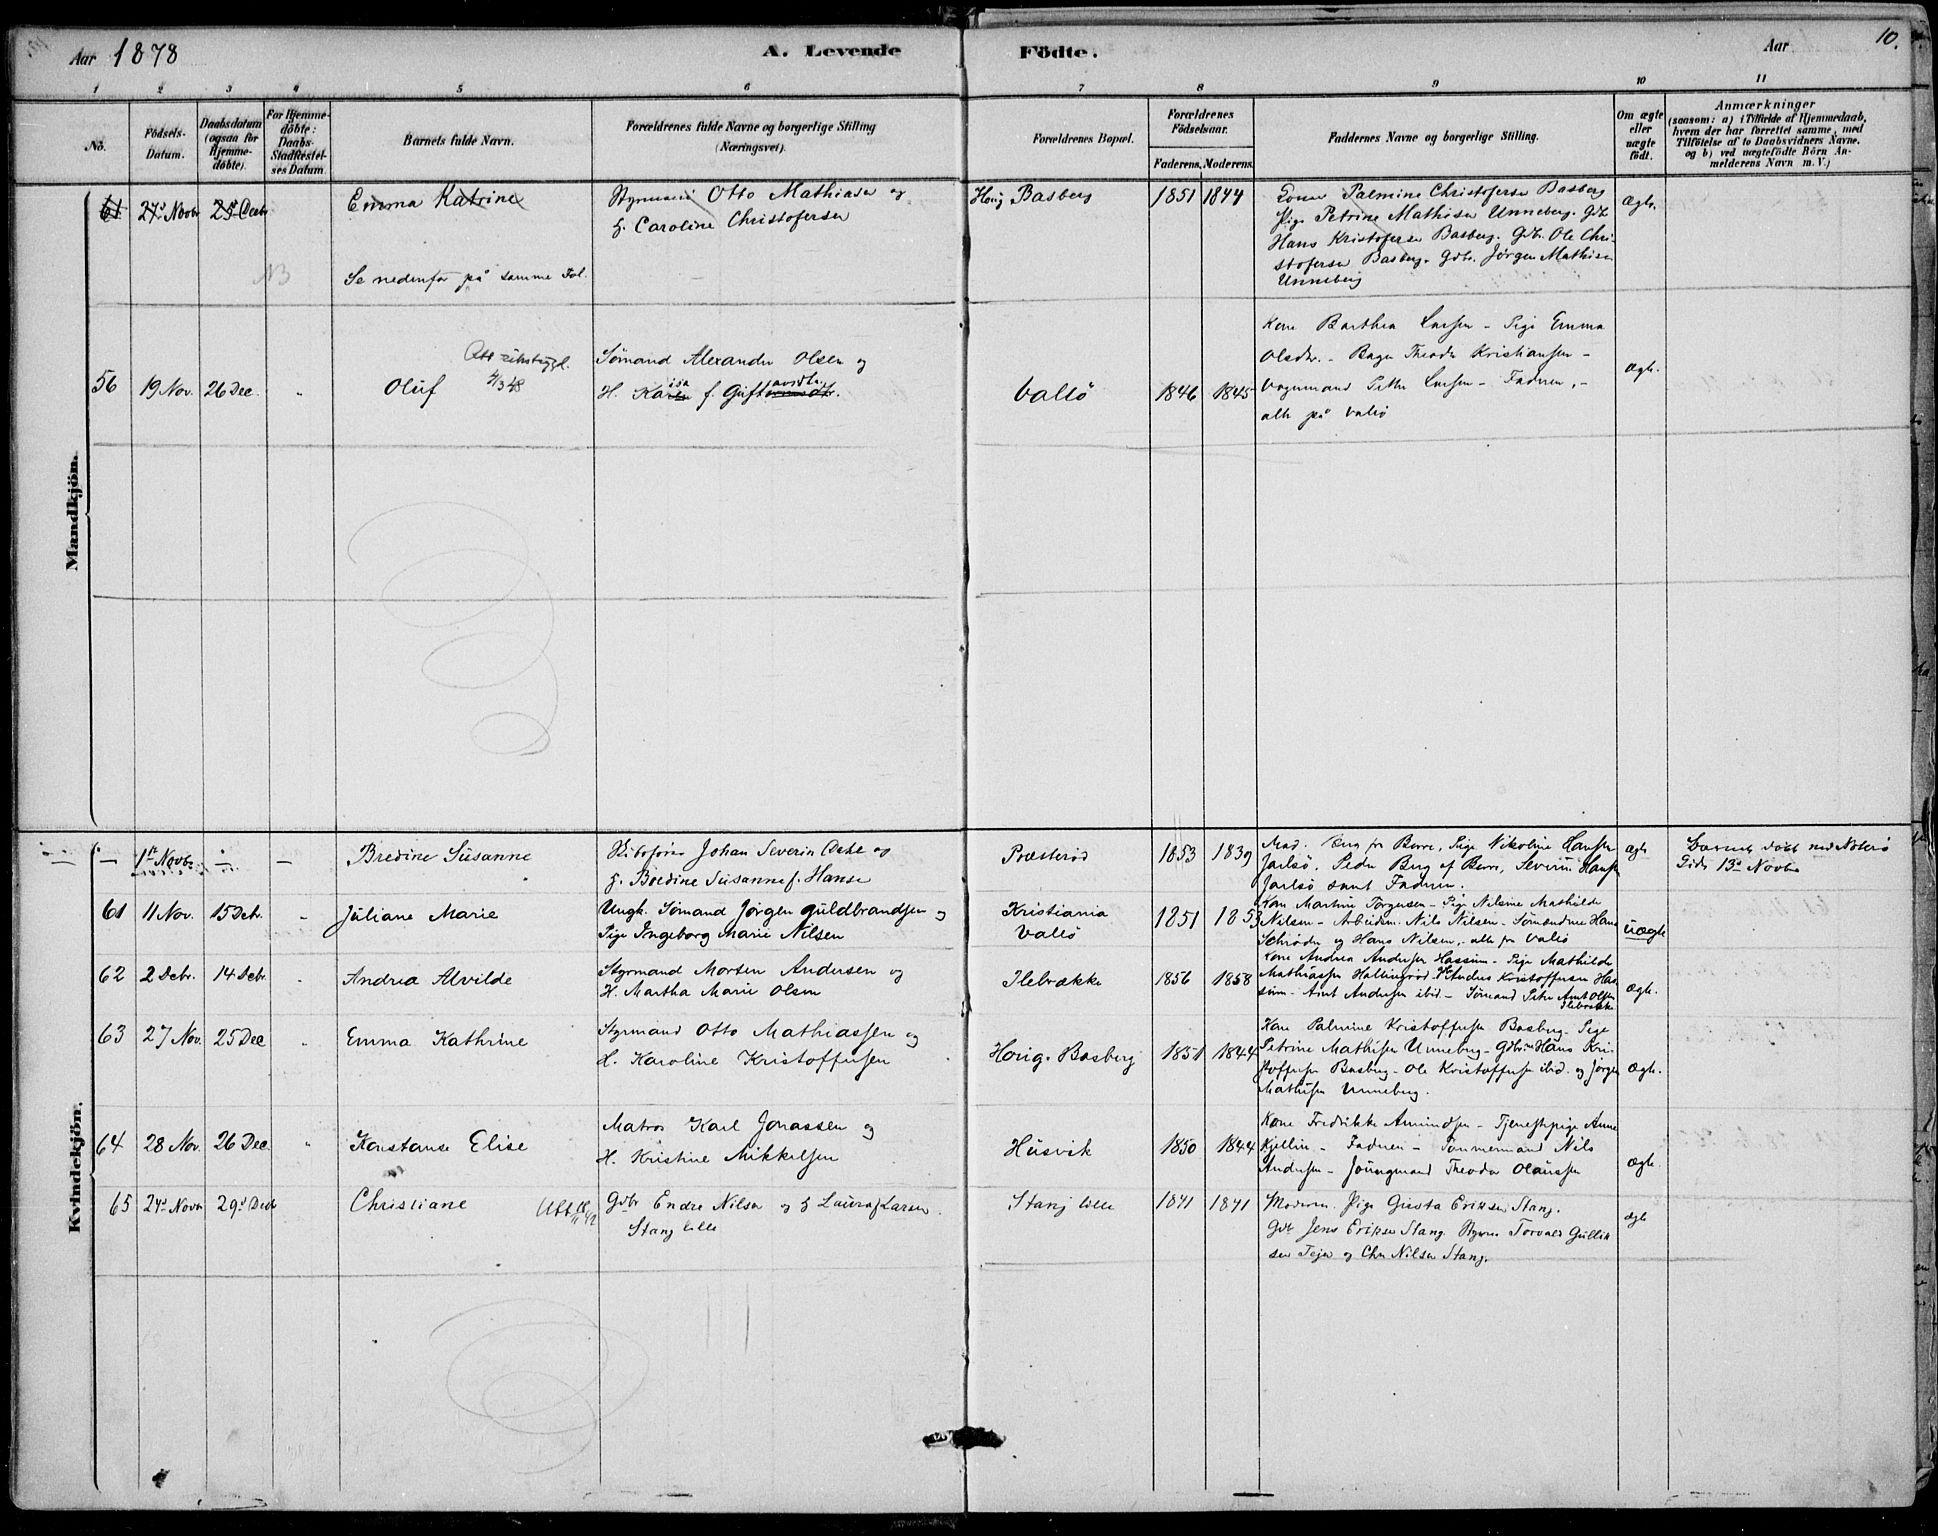 Aar 1878 A. Levende Födte. Aar 10.
1 2 3 4 5 6 7 8 9 10 11
No.
Födsels-Datum.
Daabsdatum (ogsaa for Hjemme-döbte).
For Hjemme-döbte: Daabs-Stadfæstel-ses Datum.
Barnets fulde Navn.
Forældrenes fulde Navne og borgerlige Stilling (Næringsvei).
Forældrenes Bopæl.
Forældrenes Födselsaar.
Faderens. Moderens.
Faddernes Navne og borgerlige Stilling.
Om ægte eller uægte födt.
Anmærkninger
(saasom: a) i Tilfælde af Hjemmedaab,
hvem der har forrettet samme, med
Tilföielse af to Daabsvidners Navne.
og b) ved uægtefödte Börn An-
melderens Navn m. V.)
Mandkjön.
61 27de Novbr 25de Decbr Emma Katrine Styrmand Otto Mathiasen og
H. Caroline Christofersen
Horig Basberg 1851 1844
Kone Palmine Christofersen Basberg
Pige Petrine Mathisen Unneberg. Gdb.
Hans Kristofersen Basberg. Gdbr. Ole Chri-
stofersen Basberg. Gdbr. Jørgen Mathisen
Unneberg
Ægte.
NB Se nedenfor på samme Fol.
56 19 Nov. 26 Dec. " Oluf
4/3 48
Sømand Alexander Olsen og
H. Karen f. Gust
Vallö 1846 1845
Kone Barthea Larsen - Pige Emma
Olsdtr. - Bager Theodor Kristiansen -
Vognmand Petter Larsen - Faderen, -
alle på Vallö
Ægte.
Kvindekjön.
- 1st Novbr - - Bredine Susanne Johan Severin og
H. Bredine Susanne f. Hansen
Præsterød 1853 1839
Berg fr Borre, Pige Nikoline Hansen
Jarlsö, Peder Berg af Borre, Severin Hansen
Jarlsö samt Faderen.
Ægte
Barnet døbt ved Nøterö
Kirke 13de Novbr
61 11 Nov. 15 Dcbr. " Juliane Marie Ungk. Sømand Jørgen Guldbrandsen og
Pige Ingeborg Marie Nilsen
Kristiania
Vallö
1851 1853
Kone Martine Torgersen - Pige Nilsine Mathilde
Nilsen - Arbeidsm. Nils Nilsen - Sømændene Hans
Schrøder og Hans Nilsen, - alle fra Vallö
Uægte
62 2 Dcbr. 14 Dcbr. " Andrea Alvilde Styrmand Morten Andersen og
H. Martha Marie Olsen
Ilebrække 1856 1858
Kone Andrea Andersen Hassum - Pige Mathilde
Mathiassen Hallingrød - Anders Kristoffersen Has-
sum - Amt Andersen ibid - Sømand Petter Amt Olsen
Ilebrække
Ægte.
63 27 Nov. 25 Dec " Emma Kathrine Styrmand Otto Mathiassen og
H. Karoline Kristoffersen
Horig. Basberg 1851 1844
Kone Palmine Kristoffersen Basberg - Pige
Petrine Mathisen Unneberg - Gdbrne Hans Kri-
stoffersen Basberg - Ole Kristoffersen ibid. og Jørgen
Mathisen Unneberg.
Ægte.
64 28 Nov. 26 Dec. " Konstanse Elise Matros Karl Jonassen og
H. Kristine Mikkelsen
Husvik 1850 1844
Kone Fredrikke Amundsen - Tjenestepige Anne
Kjellin - Faderen - Tømmermand Nils
Andersen - Joungmand Theodor Olaussen
Ægte.
65 24de Novbr 29de Decbr Christiane Gdbr Endre Nilsen og H Laura f Larsen.
Stang lille
Stang lille 1841 1841
Moderen. Pige Gusta Eriksen Stang.
Gdbr Jens Eriksen Stang. Styrm Torvald Gullik
sen Teje og Chr Nilsen Stang.
ægte